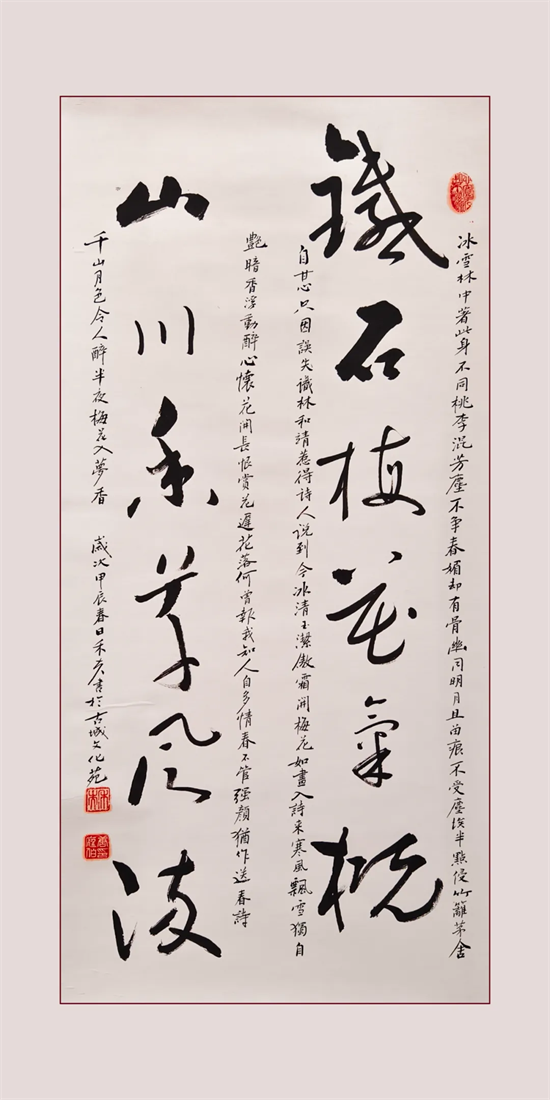 冰雪林中著此身不同桃李混芳塵不争春媚却有骨幽同明月且留痕不受塵埃半點侵竹籬茅舍
鐵石梅花氣概
自甘心只因误失識林和靖惹得诗人说到今冰清玉潔傲霜開梅花如畫入詩来寒風飄雪獨自
艷暗香浮動醉心懷花開長恨賞花遲花落何曾報我知人自多情春不管强颜猶作送春詩
山川香草風流
千山月色令人醉半夜梅花入夢香 歲次甲辰春日書於古城文化苑